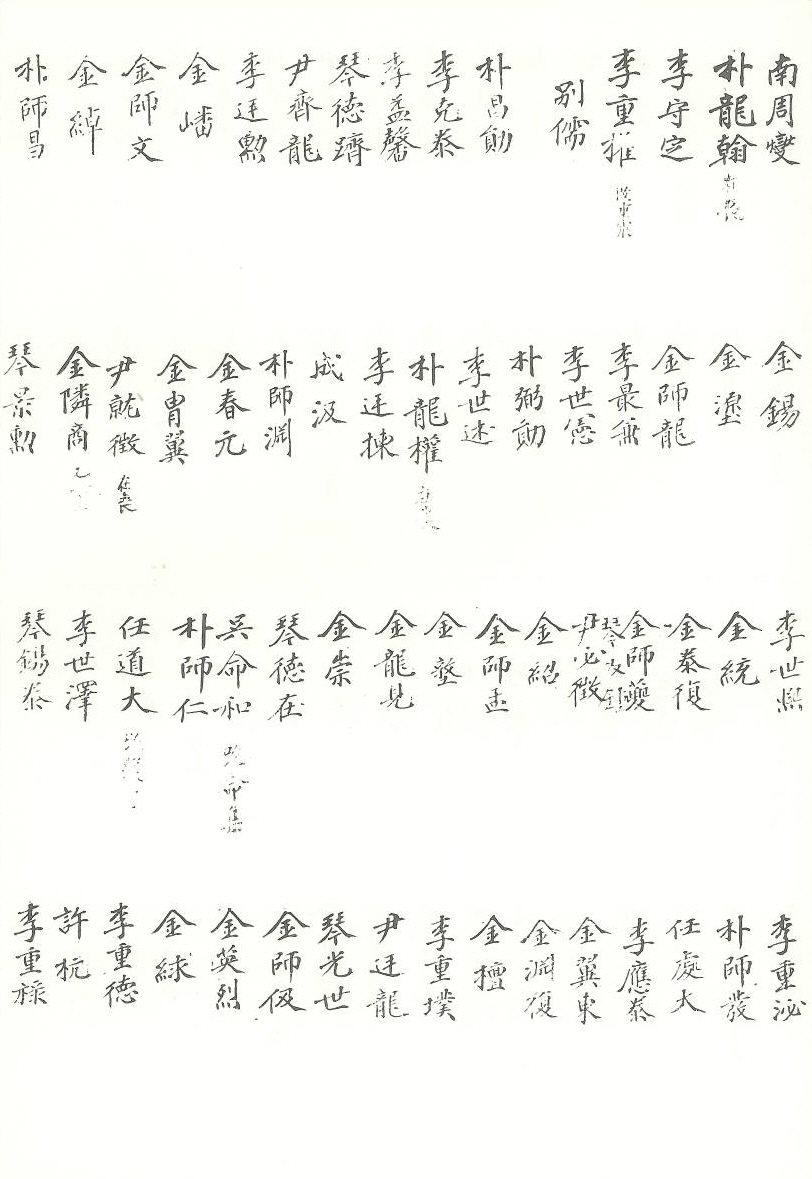 南周燮
朴龍翰
李守定
李重
別儒
朴昌勛
李克泰
李益馨
琴德躋
尹齊龍
李廷勲
金嶓
金師文
金綽
朴師昌
金錫
金瀅
金師龍
李最無
李世憲
朴弼勛
李世述
朴龍權
李廷揀
成汲
朴師淵
金春元
金胄冀
尹就徵 在喪
金隣商
琴景勲
李世熙
金統
金泰復
金師夔
琴
尹必徵
金紹
金師孟
金壑
金龍見
金崇
琴德在
吳命和 改命集
朴師仁
任道大
李世澤
琴錫泰
李重泌
朴師發
任處大
李應泰
金翼東
金淵復
金檀
李重墣
尹廷龍
琴光世
金師伋
金英烈
金絿
李重德
許杭
李重祿